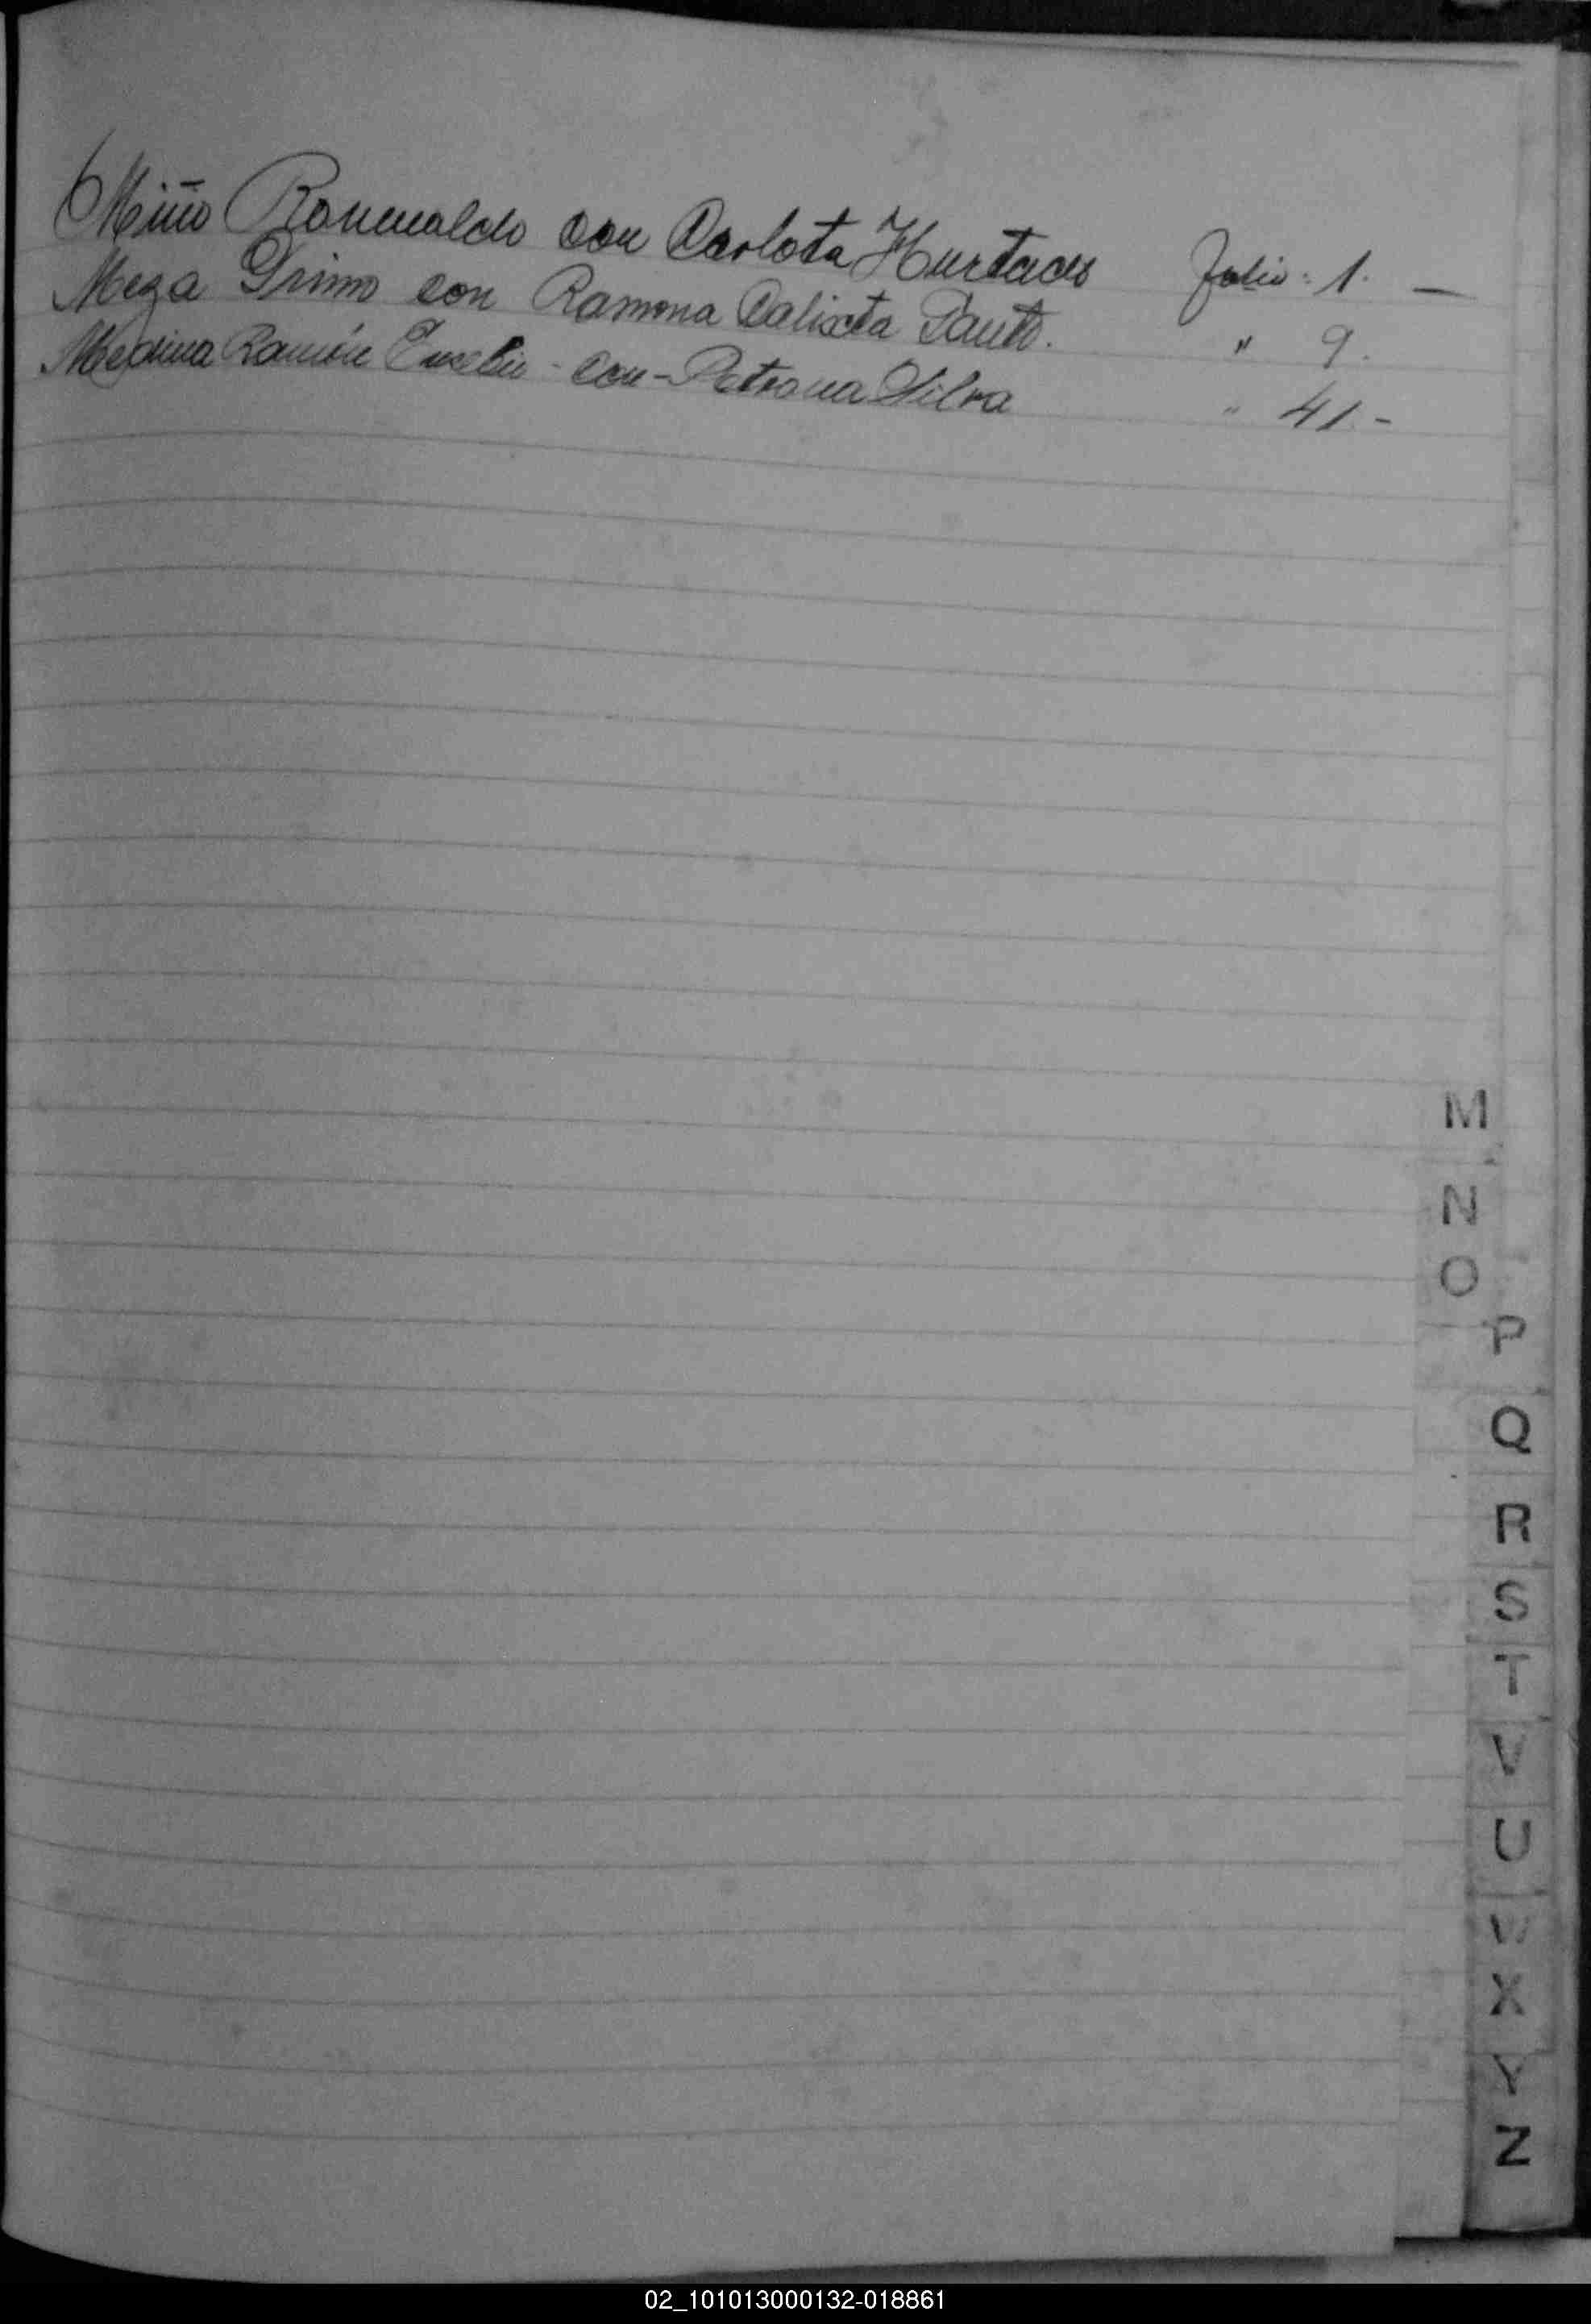 Miño Romualdo con Carlota Hurtado Folio: 1. —
Meza Primo con Ramona Calixta " 9.
Medina Ramón Eusebio - con - Petrona Silva " 41.-
M
N
O
P
Q
R
S
T
V
U
X
Y
Z
02_101013000132-018861